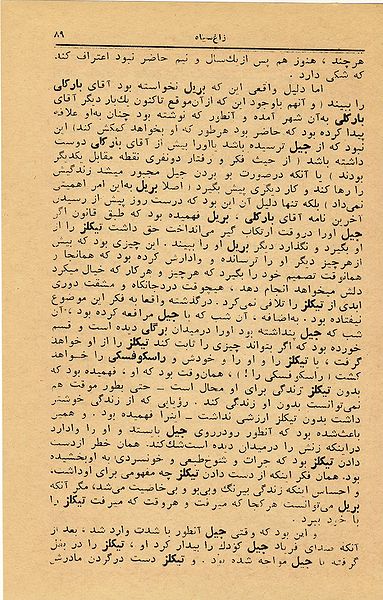 زاغ‌سیاه
۸۹
هرچند ، هنوز هم پس ازیك‌سال و نیم حاضر نبود اعتراف کند.
که شکی دارد .
اما دلیل واقعی این که بریل نخواسته بود آقای بارکلی
را ببیند ( و آنهم باوجود این که ازآن‌موقع تاکنون یك‌بار دیگر آقای
بارکلی به‌آن شهر آمده و آنطور که نوشته بود چنان به‌او علاقه
پیدا کرده بود که حاضر بود هرطور که او بخواهد کمکش کند) این
نبود که از جیل ترسیده باشد یااورا بیش از آقای بارکلی دوست
داشته باشد ( از حیث فکر و رفتار دونفری نقطه مقابل یکدیگر
بودند ) یا آنکه درصورت بو بردن جیل مجبور میشد زندگیش
را رها کند و کار دیگری پیش بگیرد ( اصلا بریل به‌این امر اهمیتی
نمی‌داد ) بلکه تنها دلیل آن این بود که درست روز پیش از رسیدن
آخرین نامه آقای بارکلی، بریل فهمیده بود که طبق قانون اگر
جیل اورا دروقت ارتکاب گیر می‌انداخت حق داشت تیکلز را از
او بگیرد و نگذارد دیگر بریل او را ببیند . این چیزی بود که بیش
ازهرچیز دیگر او را ترسانده و وادارش کرده بود که همانجا و
همانوقت تصمیم خود را بگیرد که هرچیز و هرکار که خیال میکرد
دلش میخواهد انجام دهد ، هیچوقت دردجانکاه و مشقت دوری
ابدی از تیکلز را تلافی نمی‌کرد . درگذشته واقعا به فکر این موضوع
نیفتاده بود . به‌اضافه ، آن شب که با جیل مرافعه کرده بود ، آن
شب که جیل پنداشته بود اورا درمیدان برکلی دیده است و قسم
خورده بود که اگر بتواند چیزی را ثابت کند تیکلز را از او خواهد
گرفت ، یا تیکلز را و او را و خودش و راسکوفسکی را خـواهد
کشت (راسکوفسکی را!) ، همان‌وقت بود که او ، فهمیده بود که
بدون تیکلز زندگی برای او محال است – حتی بطور موقت هم
نمی‌توانست بدون او زندگی کند . رؤیایی که از زندگی خوشتر
داشت بدون تیکلز ارزشی نداشت – اینرا فهمیده بود . و همین
باعث‌شده بود که آنطور رودرروی جیل بایستد و او را وادارد
دراینکه زنش را درمیدان دیده است‌شك‌کند. همان خطر ازدست
دادن تیکلز بود که جرات و شوخ‌طبعی و خونسردی به اوبخشیده
بود. همان فکر اینکه از دست دادن تیکلز چه مفهومی برای اوداشت،
و احساس اینکه زندگی بیرنگ وبی‌بو و بی‌خاصیت می‌شد، مگر آنکه
بریل می‌توانست هرکجا که میرفت و هروقت که میرفت تیکلز را
با خود ببرد .
و این بود که وقتی جیل آنطور با شدت وارد شد ، بعد از
آنکه صدای فریاد جیل کودك را بیدار کرد او ، تیکلز را در بغل
گرفته با جیل مواجه شده بود . و تیکلز دست درگردن مادرش